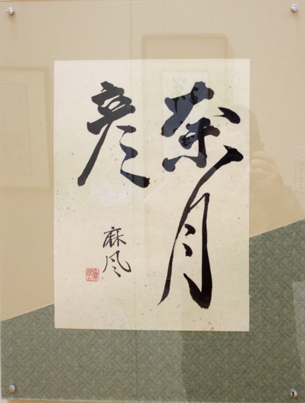 奈月
彦
麻風